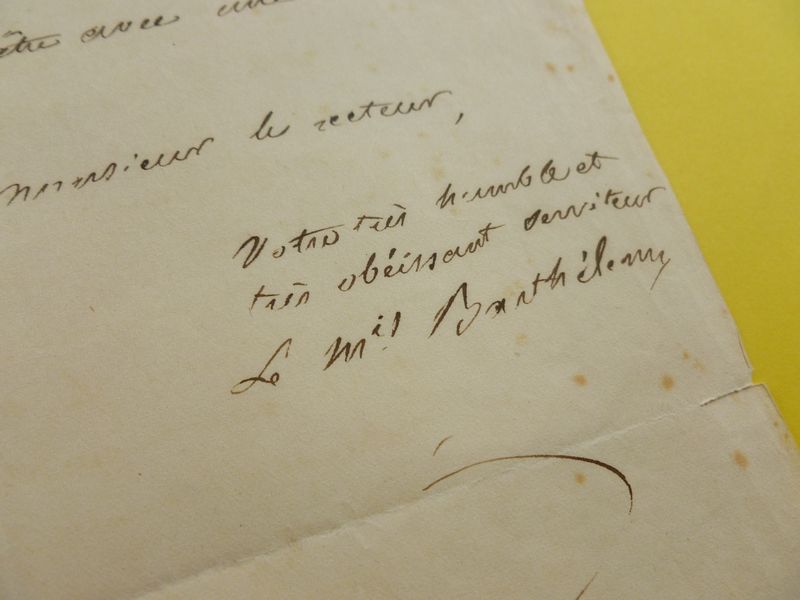 être avec une
monsieur le recteur,
Votre très humble et
très obéissant serviteur
Le Mis Barthélemy